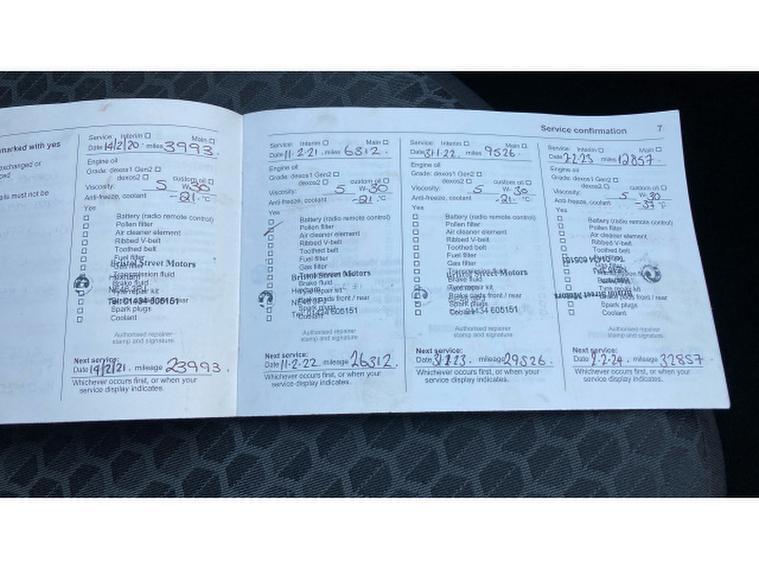 marked with yes
exchanged or
ails must not be
Service: Interim Main
Date 14/2/20. miles 3993.
Engine oil
Grade: dexos1 Gen2
dexos2 custom oil
Viscosity: 5 W- 30
Anti-freeze, coolant -21. °C
Yes
Battery (radio remote control)
Pollen filter
Air cleaner element
Ribbed V-belt
Toothed belt
Fuel filter
Bristol Street Motors
Transmission fluid
Hexham
Brake fluid
Tyre repair kit
Tel: 01434 605151
Spark plugs
Coolant
Authorised repairer
stamp and signature
Next service:
Date 14/2/21. mileage 23993.
Whichever occurs first, or when your
service display indicates.
Service confirmation 7
Service: Interim Main
Date 11-2-21. miles 6312.
Engine oil
Grade: dexos1 Gen2
dexos2 custom oil
Viscosity: 5 W- 30
Anti-freeze, coolant -21 °C
Yes
Battery (radio remote control)
Pollen filter
Air cleaner element
Ribbed V-belt
Toothed belt
Fuel filter
Gas filter
Bristol Street Motors
Brake fluid
Brake pads front / rear
Tel: 01434 605151
Coolant
Authorised repairer
stamp and signature
Next service:
Date 11-2-22. mileage 26312.
Whichever occurs first, or when your
service display indicates.
Service: Interim Main
Date 31.1.22. miles 9526.
Engine oil
Grade: dexos1 Gen2
dexos2 custom oil
Viscosity: 5 W- 30
Anti-freeze, coolant -21. °C
Yes
Battery (radio remote control)
Pollen filter
Air cleaner element
Ribbed V-belt
Toothed belt
Fuel filter
Gas filter
Bristol Street Motors
Brake fluid
Tyre repair kit
Brake pads front / rear
Spark plugs
Coolant 01434 605151
Authorised repairer
stamp and signature
Next service:
mileage 29526.
Whichever occurs first, or when your
service display indicates.
Service: Interim Main
Date 2.2.23 miles 12857.
Engine oil
Grade: dexos1 Gen2
dexos2 custom oil
Viscosity: 5 W- 30
Anti-freeze, coolant -37 °C
Yes
Battery (radio remote control)
Pollen filter
Air cleaner element
Ribbed V-belt
Toothed belt
Fuel filter
Tel: 01434 605151
Gas filter
Brake fluid
Tyre repair kit
Brake pads front / rear
Bristol Street Motors
Spark plugs
Coolant
Authorised repairer
stamp and signature
Next service:
Date 2.2.24. mileage 32857.
Whichever occurs first, or when your
service display indicates.